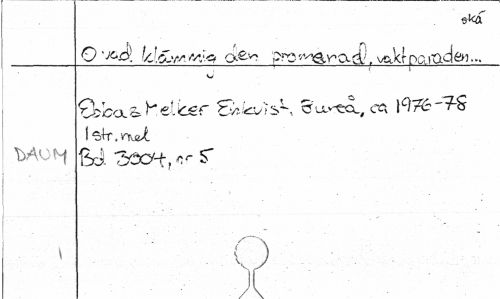 skå
O vad klämmig den promenad, vaktparaden...
Ebba & Melker Enkvist, Bureå, ca 1976-78
1 str. mel
DAUM Bd 3004, nr 5